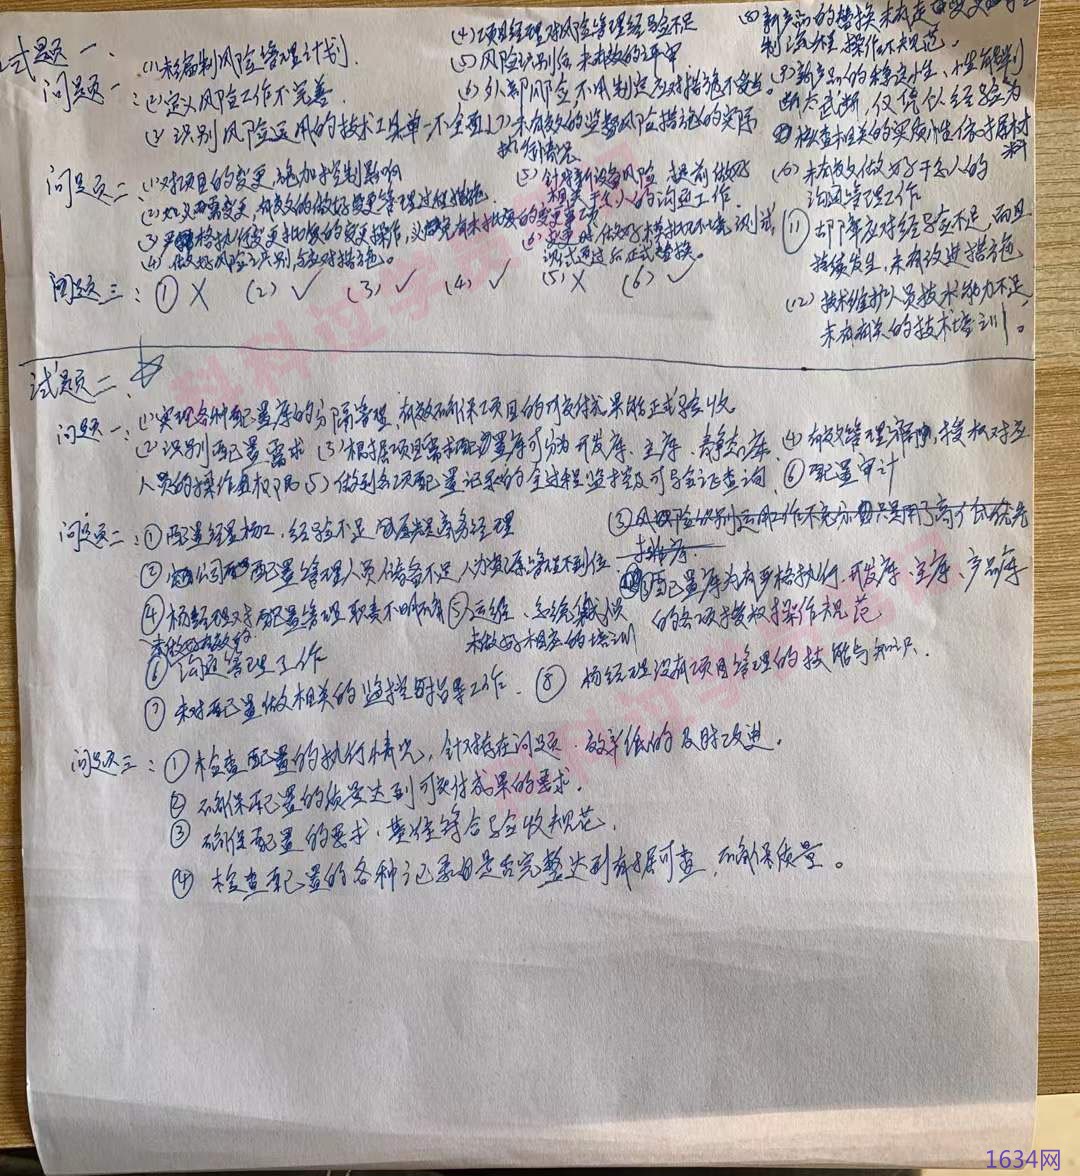 试题一、
问题一：(1)未编制风险管理计划.
(2)定义风险工作不完善.
(3)识别风险运用的技术工具单一不全面
(4)项目经理对风险管理经验不足
(5)风险识别后未有效的评审
(6)外部风险,不用制定应对措施不妥当。
(7)未有效的监督风险措施的实际
执行情况
(8)新产品的替换未有走
制流程 操作不规范。
(9)新产品的稳定性、
断太武断,仅凭以经验为
检查相关的实质性依据材
料
(10)未有效做好干系人的
沟通管理工作
(11)却下单应对经验应不足,而且
持续发生,未有改进措施
(12)技术维护人员技术能力不足,
未有有关的技术培训。
问题二：(1)对项目的变更,施加于控制影响
(2)如必需变更,有效的做好变更管理过程措施.
(3)严格执行变更批复的变更操作,以避免有未批复的变更事项
(4)做好风险识别,与应对措施。
(5)针对新设备风险 提前做好
相关干系人的沟通工作.
(6)变更时做好模拟环境测试
测试通过后正式替换。
问题三：① X (2)✓ (3)✓ (4)✓ (5)X (6)✓
试题二、
问题一：(1)实现各种配置库的分隔管理,有效确保项目的可交付成果能正式验收
(2)识别配置需求 (3)根据项目需求配置库可分为开发库、主库、静态库、(4)有效管理 授权对应
人员的操作且权限 (5)做到各项配置记录的全过程监控及可导全记查询、⑥配置审计
问题二：①配置经理杨工,经验不足
②公司配置管理人员储备不足,人力资源管理不到位.
③配置库为有严格执行.开发库、主库、产品库
的各项授权操作规范
④杨经理对配置管理职责不明确
⑤运维、系统集成
未做好相应的培训
未做好有效的
⑥沟通管理工作
⑦未对配置做相关的监控与指导工作.
⑧杨经理没有项目管理的技能与知识.
问题三：①检查配置的执行情况,针对存在问题、效率低的及时改进.
②确保配置的质量达到可交付成果的要求.
③确保配置的要求、基准符合验收规范.
④检查配置的各种记录日是否完整达到有据可查,确保质量。
科科过学员
科科过学员
1634网